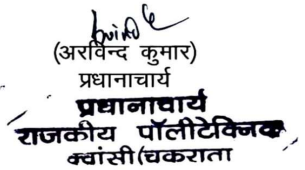 (अरविन्द कुमार)
प्रधानाचार्य
प्रधानाचार्य
राजकीय पॉलीटेक्निक
क्वांसी(चकराता